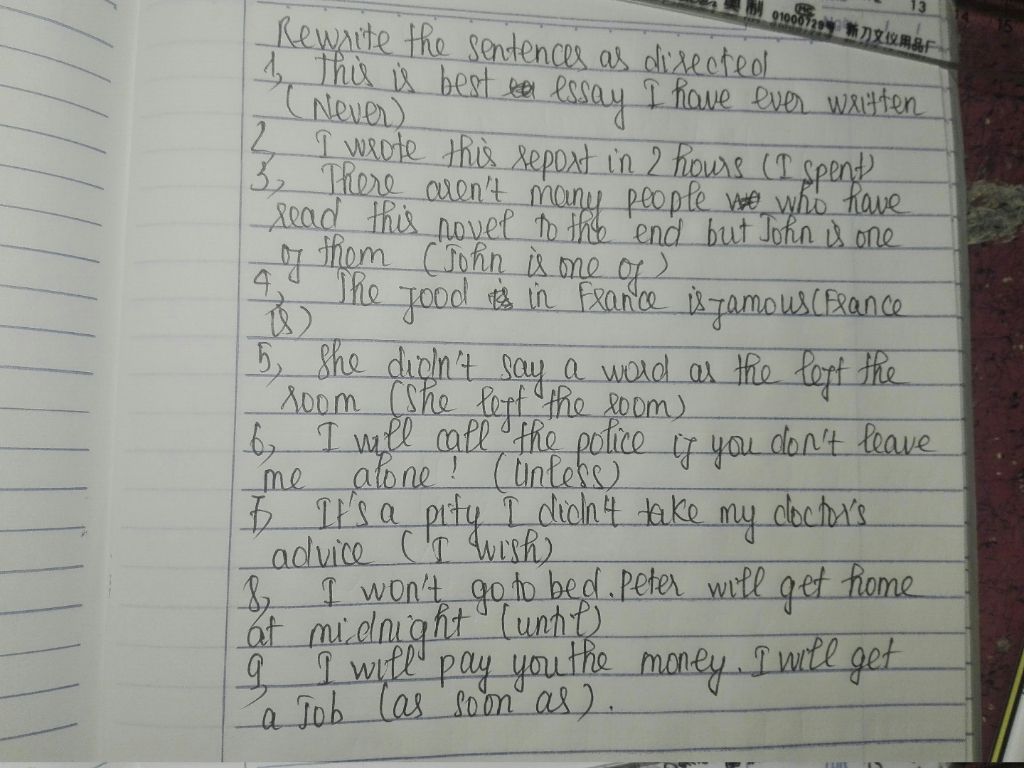 13
奥制
01000729号 新刀文仪用品厂
Rewrite the sentences as directed
1, This is best essay I have ever written
(Never)
2 I wrote this report in 2 hours (I spent)
3, There aren't many people who have
read this novel to the end but John is one
of them (John is one of)
4, The food in France is famous (France
is)
5, She didn't say a word as the left the
room (She left the room)
6, I will call the police if you don't leave
me alone! (Unless)
7, It's a pity I didn't take my doctor's
advice (I wish)
8, I won't go to bed. Peter will get home
at midnight (until)
9, I will pay you the money. I will get
a Job (as soon as).